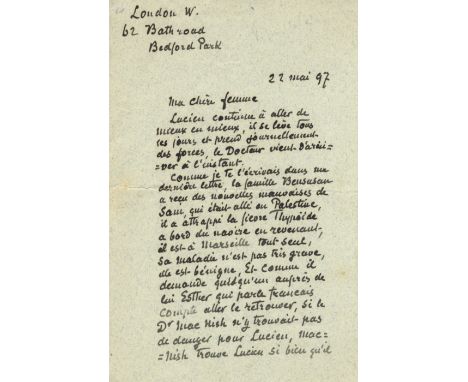 London W.
62 Bath road
Bedford Park
22 mai 97
Ma chère femme
Lucien continue à aller de
mieux en mieux, il se lève tous
les jours et prend journellement
des forces, le Docteur vient d'arri-
=ver à l'instant.
Comme je te l'écrivais dans ma
dernière lettre, la famille Bensusan
a reçu des nouvelles mauvaises de
Sam, qui était allé en Palestine,
il a attrappé la fièvre Thyphoïde
a bord du navire en revenant,
il est à Marseille tout seul,
sa maladie n'est pas très grave,
elle est bénigne, Et comme il
demande quelqu'un auprès de
lui Esther qui parle français
compte aller le retrouver, si le
Dr Mac Nish n'y trouvait pas
de danger pour Lucien, Mac=
=Nish trouve Lucien si bien qu'il